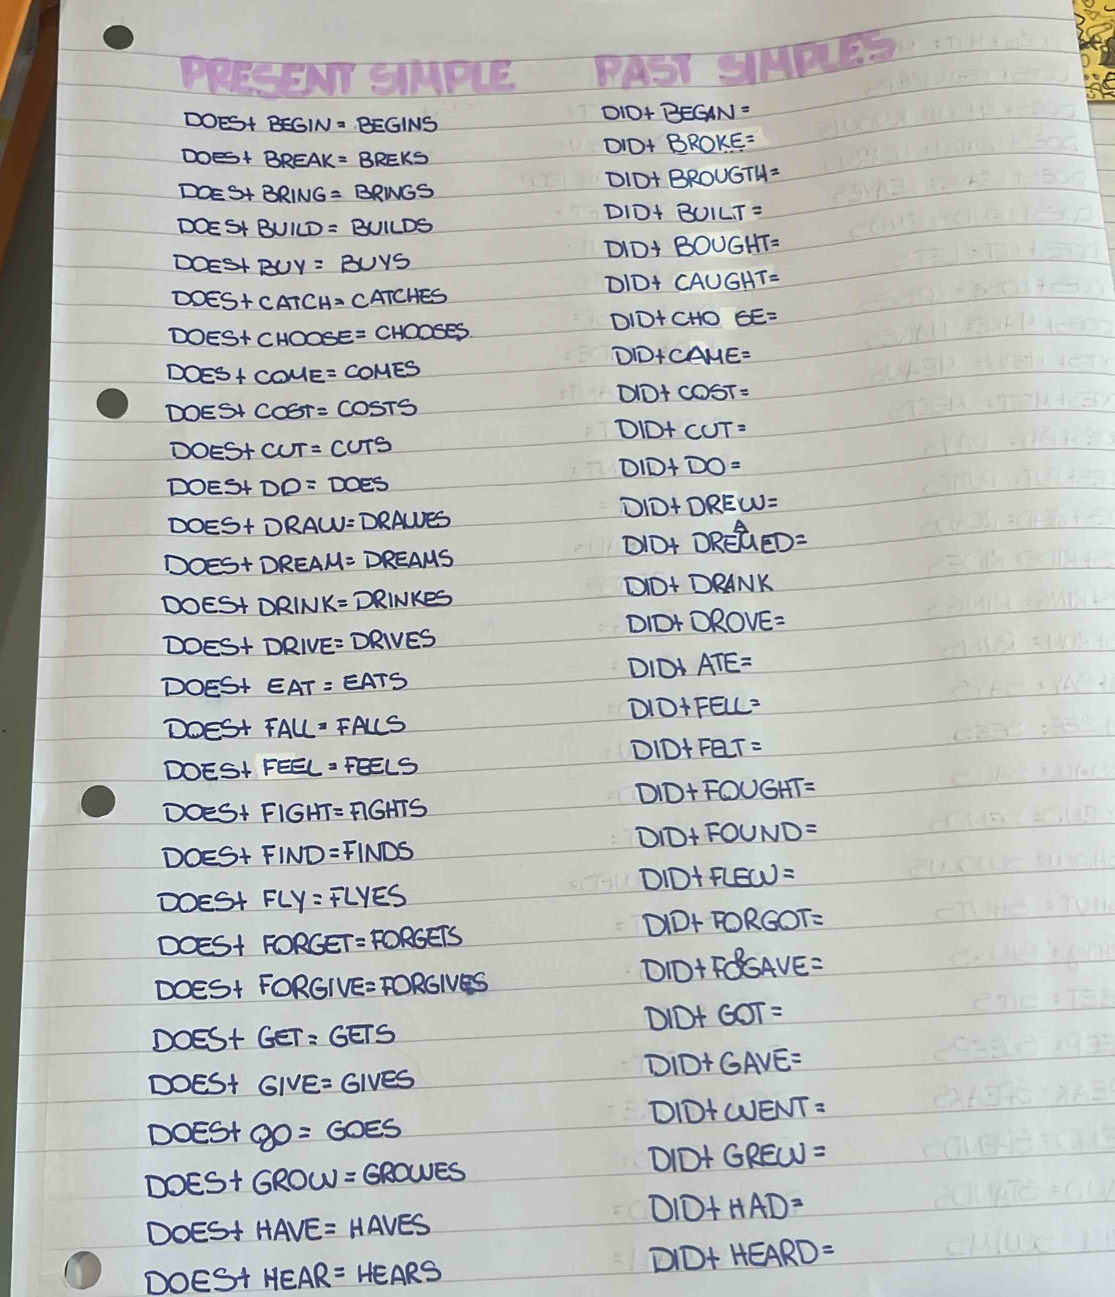 PRESENT SIMPLE PAST SIMPLES
DOES+ BEGIN = BEGINS DID+ BEGAN =
DOES+ BREAK = BREKS DID+ BROKE =
DOES+ BRING = BRINGS DID+ BROUGTH =
DOES+ BUILD = BUILDS DID+ BUILT =
DOES+ BUY = BUYS DID+ BOUGHT =
DOES+ CATCH = CATCHES DID+ CAUGHT =
DOES+ CHOOSE = CHOOSES DID+ CHO SE =
DOES + COME = COMES DID+ CAME =
DOES+ COST = COSTS DID+ COST =
DOES+ CUT = CUTS DID+ CUT =
DOES+ DO = DOES DID+ DO =
DOES+ DRAW = DRAWES DID+ DREW =
DOES+ DREAM = DREAMS DID+ DREAMED =
DOES+ DRINK = DRINKES DID+ DRANK
DOES+ DRIVE = DRIVES DID+ DROVE =
DOES+ EAT = EATS DID+ ATE =
DOES+ FALL = FALLS DID+ FELL =
DOES+ FEEL = FEELS DID+ FELT =
DOES+ FIGHT = FIGHTS DID+ FOUGHT =
DOES+ FIND = FINDS DID+ FOUND =
DOES+ FLY = FLYES DID+ FLEW =
DOES+ FORGET = FORGETS DID+ FORGOT =
DOES+ FORGIVE = FORGIVES DID+ FORGAVE =
DOES+ GET = GETS DID+ GOT =
DOES+ GIVE = GIVES DID+ GAVE =
DOES+ go = GOES DID+ WENT =
DOES+ GROW = GROWES DID+ GREW =
DOES+ HAVE = HAVES DID+ HAD =
DOES+ HEAR = HEARS DID+ HEARD =